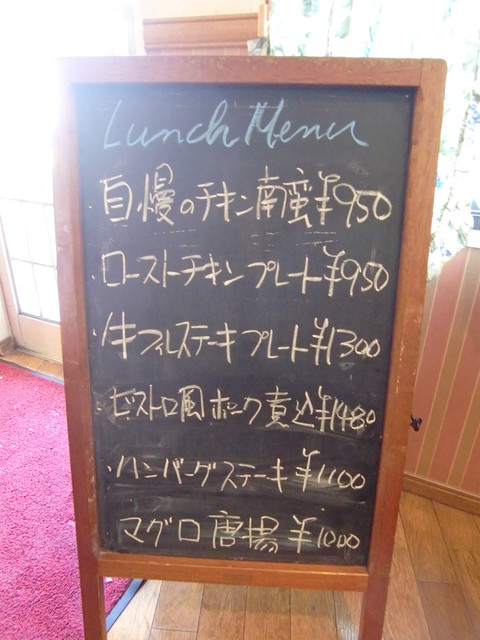 Lunch Menu
・自慢のチキン南蛮¥950
・ローストチキンプレート¥950
・牛フィレステーキプレート¥1300
・ビストロ風ポーク煮込¥1480
・ハンバーグステーキ¥1100
マグロ唐揚¥1000